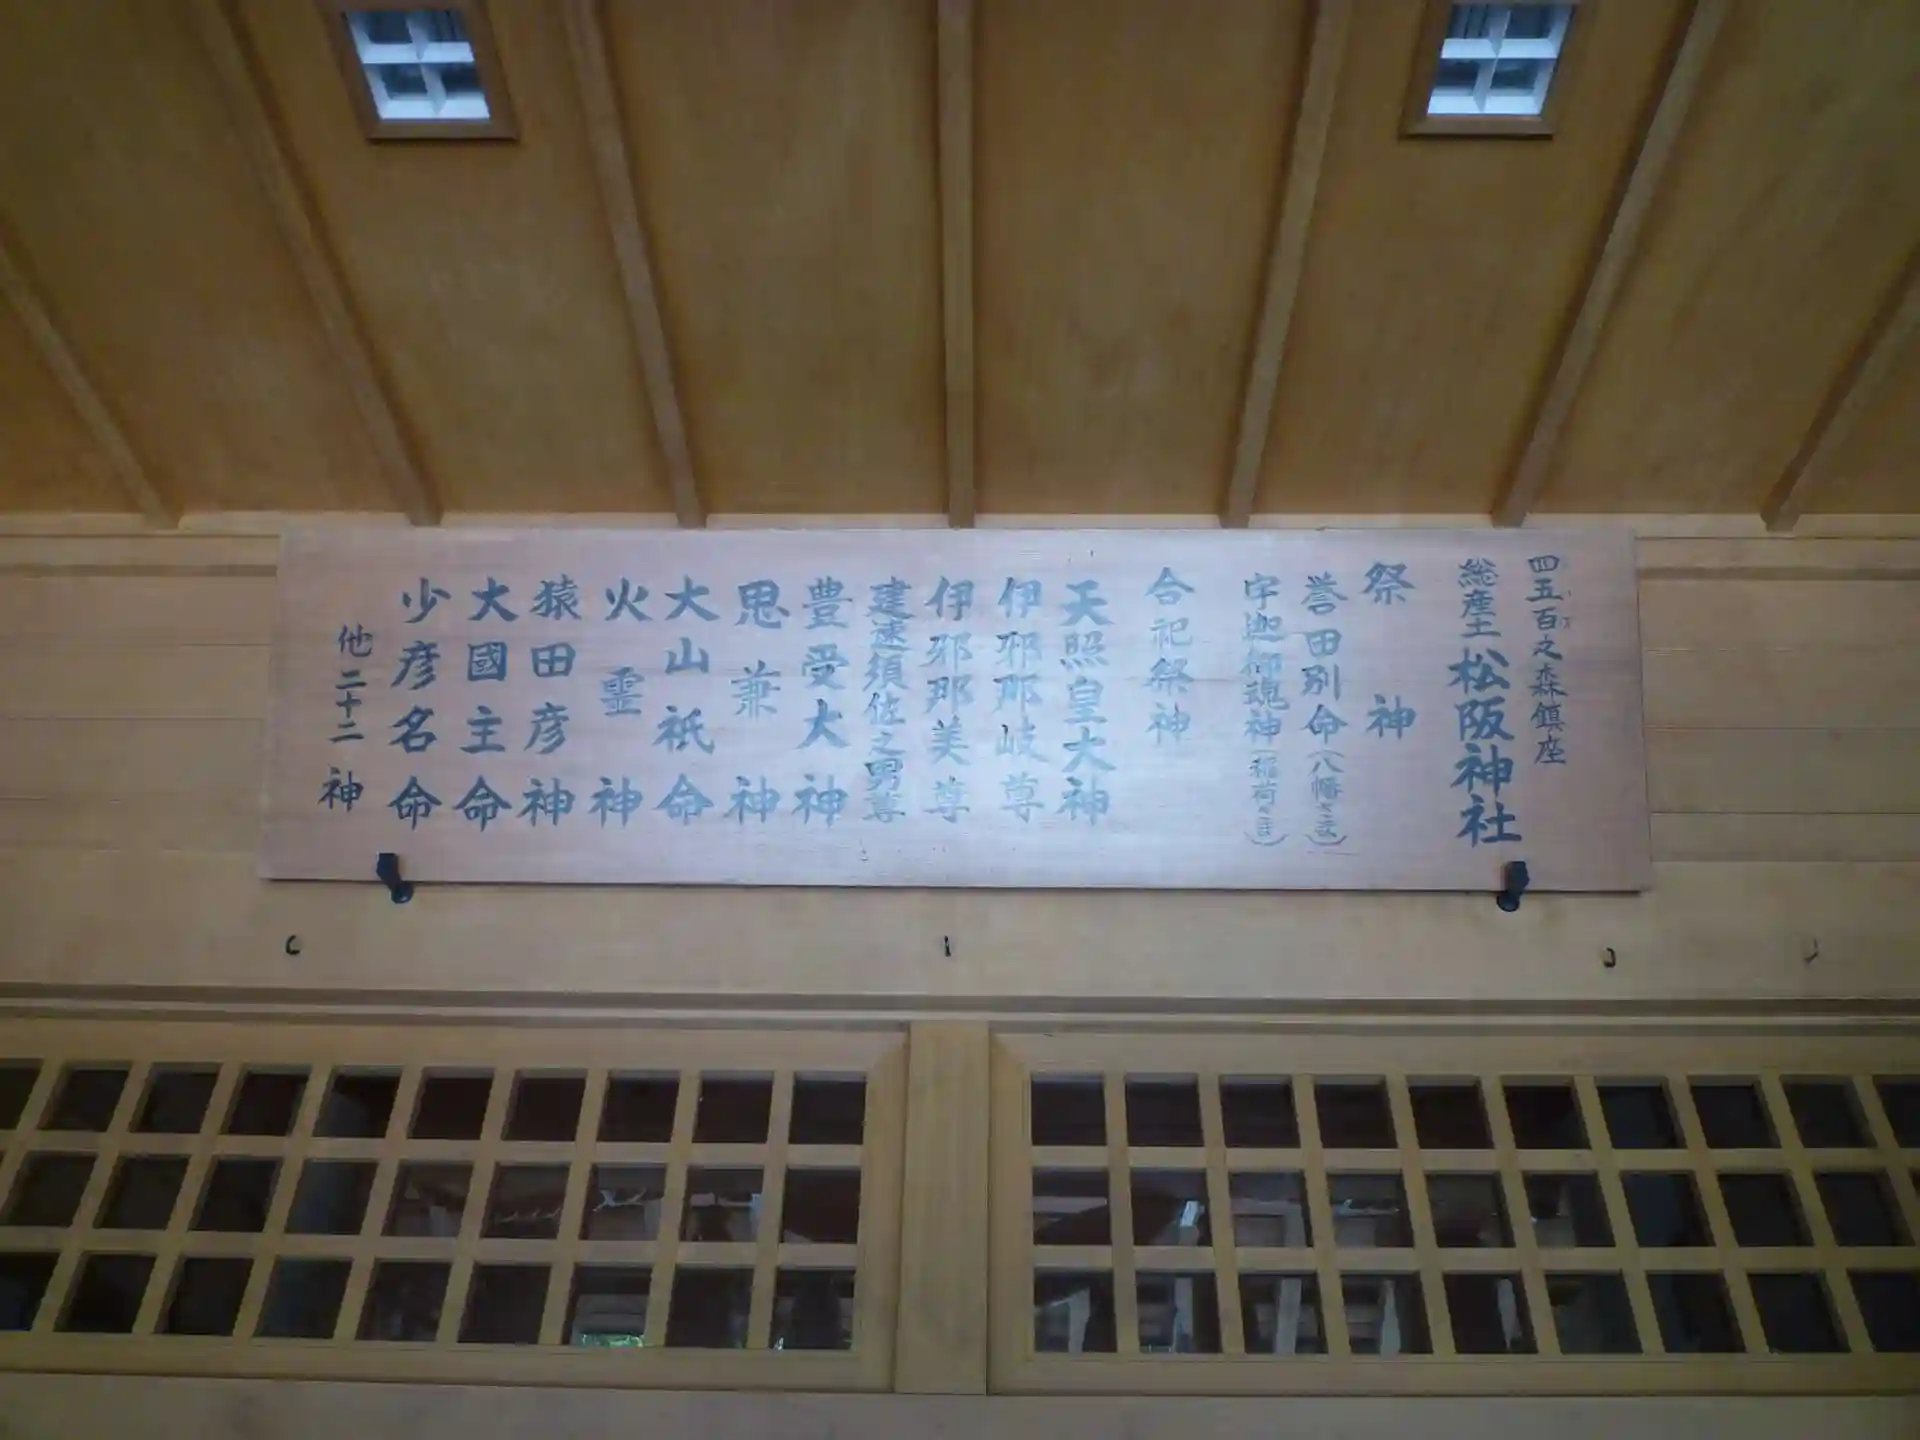 四五百之森鎮座
総産土松阪神社
祭神
誉田別命(八幡さま)
宇迦御魂神(稲荷さま)
合祀祭神
天照皇大神
伊邪那岐尊
伊邪那美尊
建速須佐之男尊
豊受大神
思兼神
大山祇命
火霊神
猿田彦神
大國主命
少彦名命
他二十二神